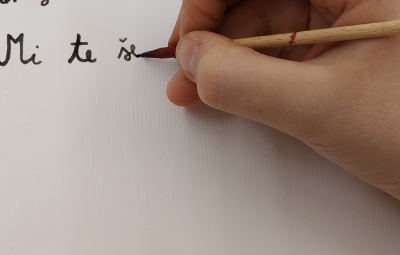 Mi te še